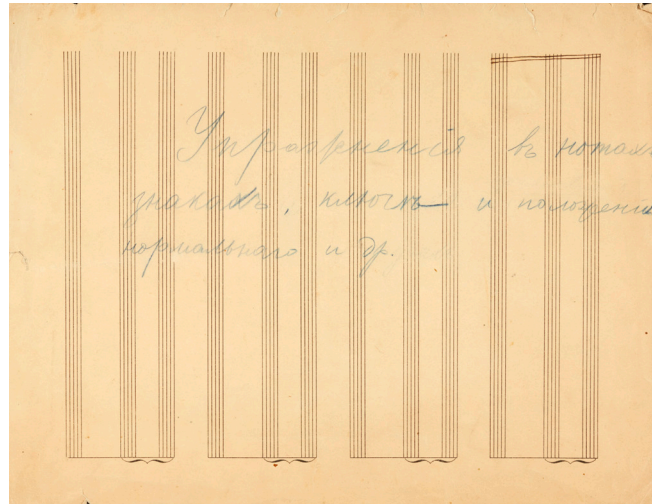 Упражненія въ нотахъ
знакахъ, ключъ и положеніи
нормальнаго и др.